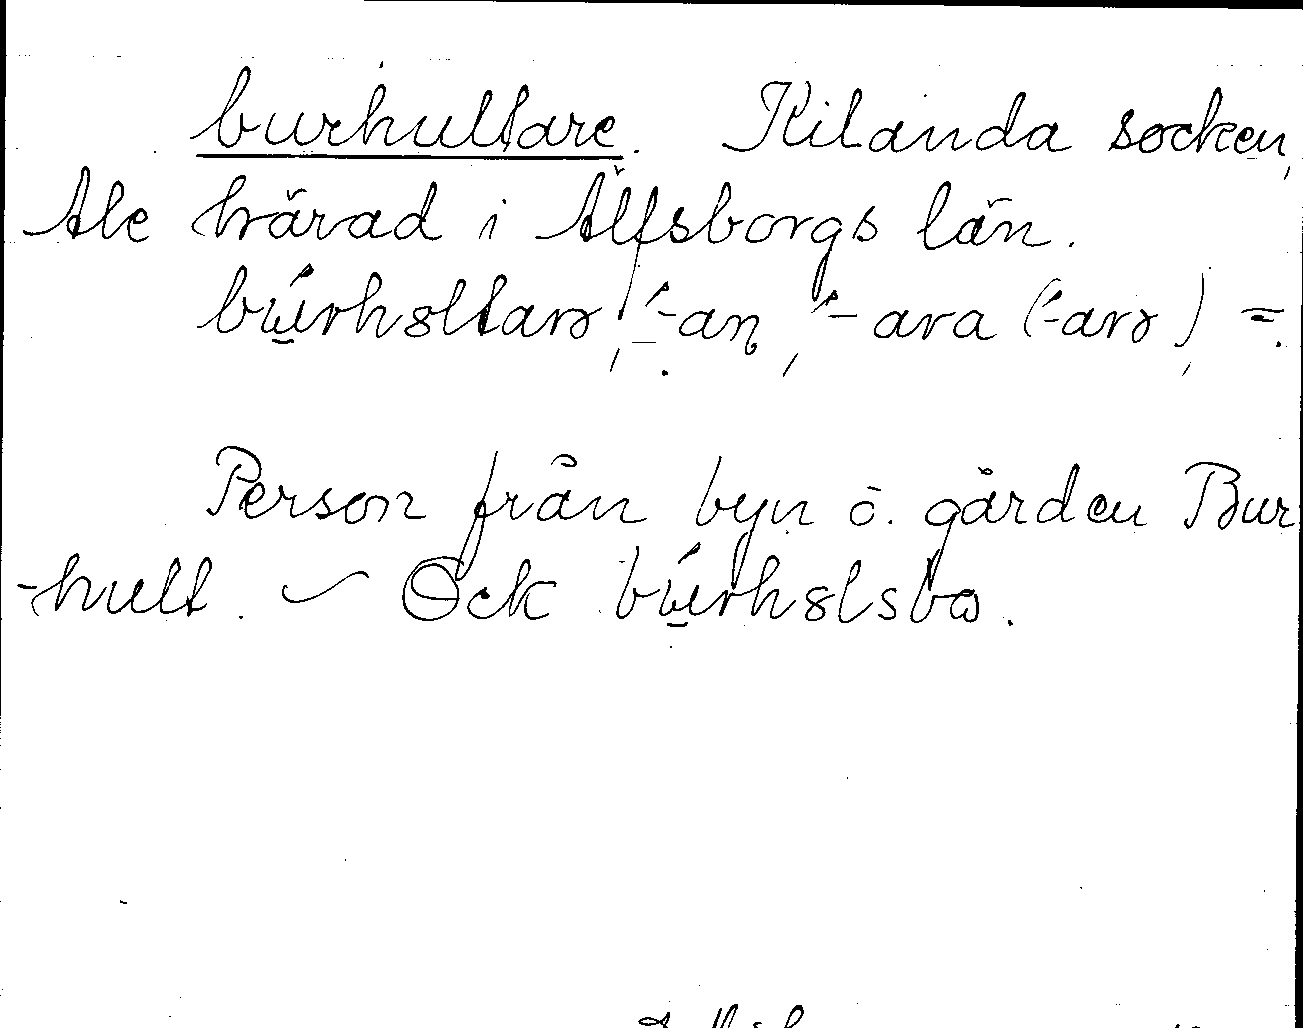 burhultare. Kilanda socken,
Ale härad i Älfsborgs län.
búrhɞltarɘ, ́-aṇ, ́-ara (́-arɘ) =.
Person från byn o. gården Bur
-hult. ~ Ock búrhɞlsbɷ.